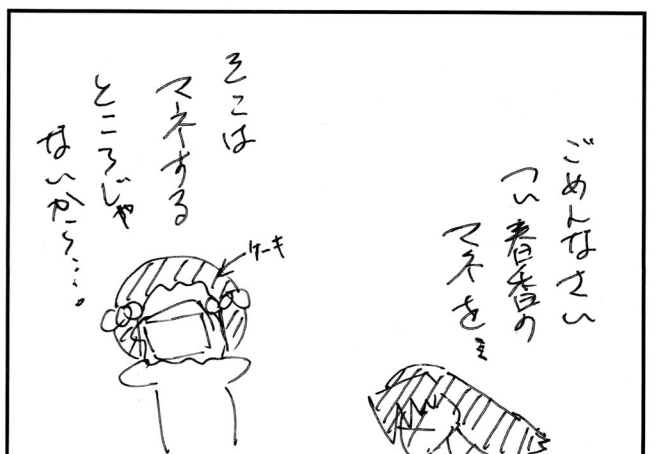 ごめんなさい
つい春香の
マネを…
そこは
マネする
ところじゃ
ないから…。
ケーキ